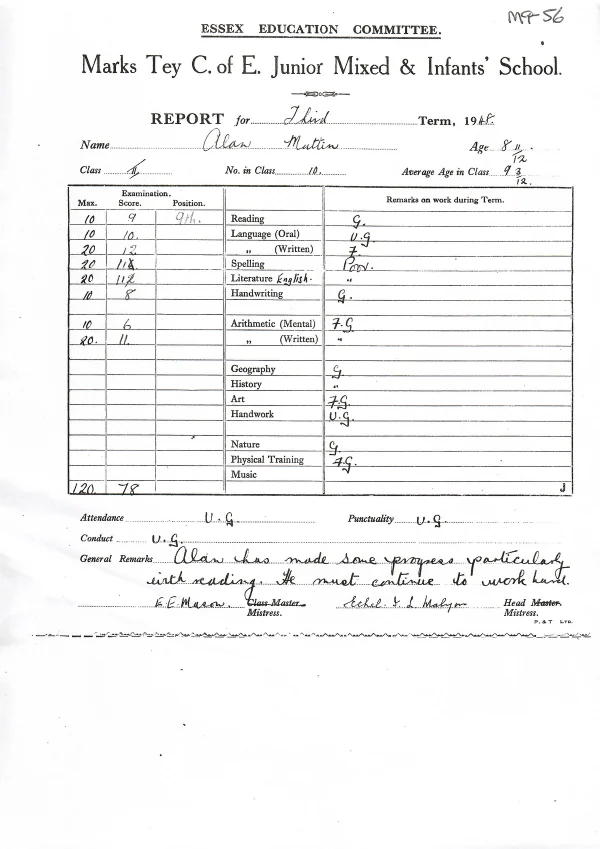 MP-56
ESSEX EDUCATION COMMITTEE.
Marks Tey C. of E. Junior Mixed & Infants' School.
REPORT for Third Term, 1948.
Name Alan Mattin Age 8 11/12.
Class II. No. in Class 10. Average Age in Class 9 3/12.
Examination.
Max. Score. Position. Remarks on work during Term.
10 9 9th. Reading G.
10 10. Language (Oral) V.G.
20 12 „ (Written) F.
20 Spelling Poor.
20 Literature English. "
10 8 Handwriting G.
10 6 Arithmetic (Mental) F.G
20. 11. „ (Written) "
Geography G.
History "
Art F.G.
Handwork V.G.
Nature G.
Physical Training F.G.
Music
120. 78 J
Attendance V.G. Punctuality V.G.
Conduct V.G.
General Remarks Alan has made some progress particularly
with reading. He must continue to work hard.
E.E. Mason. Class Master Mistress. Head Master. Mistress.
P. & T LTD.